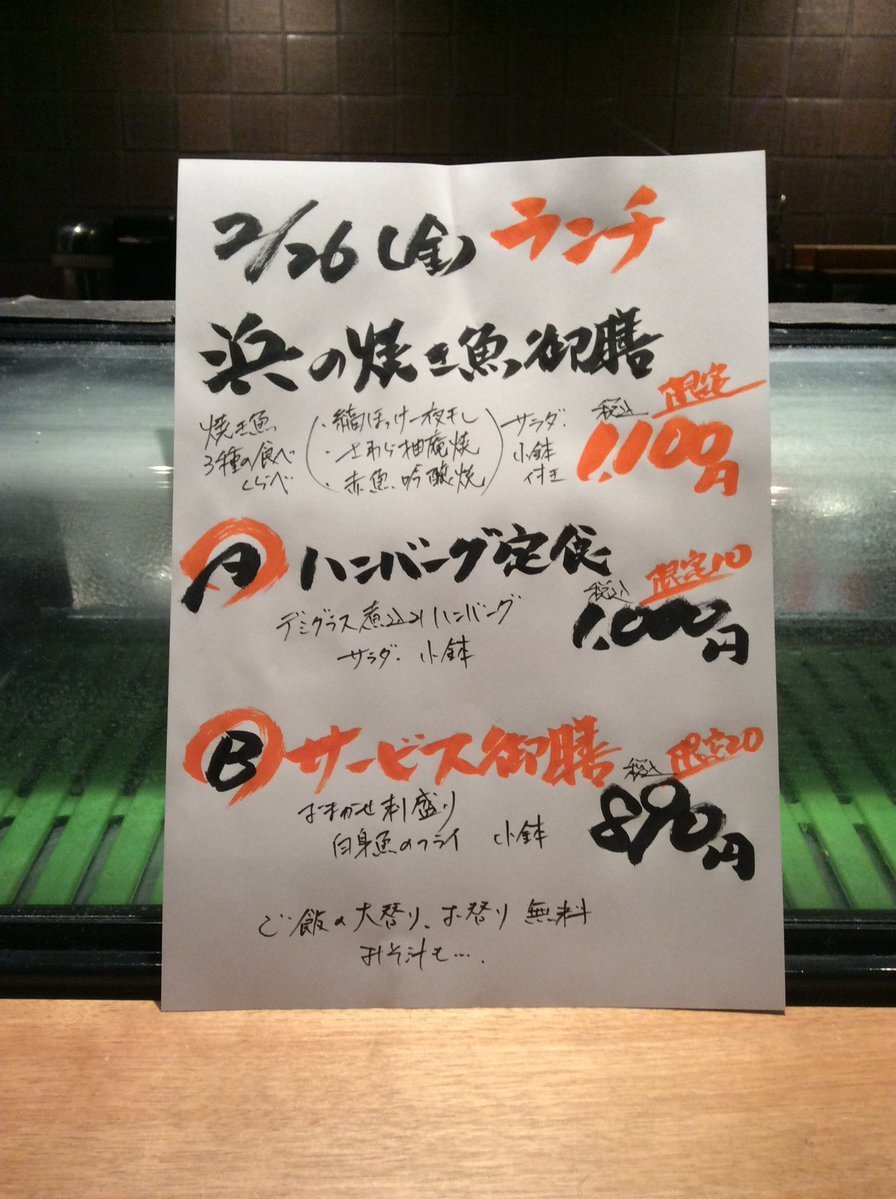 2/26(金)ランチ
浜の焼き魚御膳
限定
税込
1,100円
焼き魚
3種の食べ
くらべ
・縞ほっけ一夜干し
・さわら柚庵焼
・赤魚吟醸焼
サラダ.
小鉢
付き
A ハンバーグ定食
限定10
税込
1,000円
デミグラス煮込みハンバーグ
サラダ. 小鉢
B サービス御膳
限定20
税込
890円
おまかせ刺盛り
白身魚のフライ 小鉢
ご飯の大替り、お替り 無料
みそ汁も….